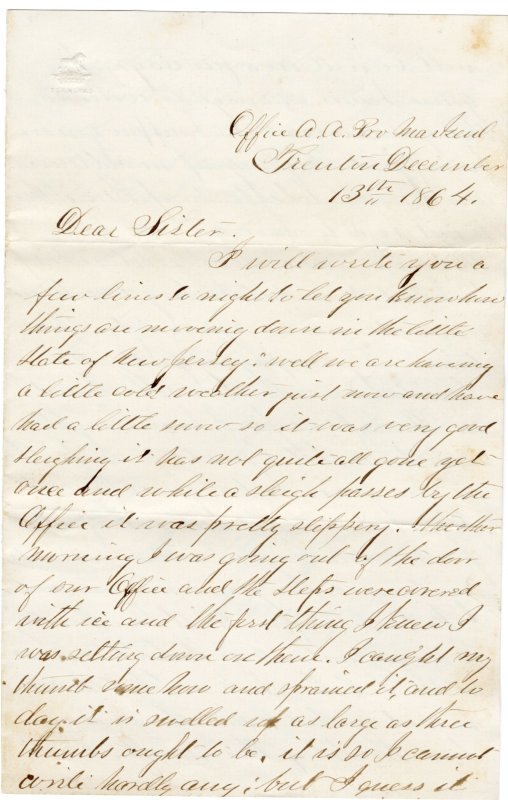 Office A. A. Pro Marshal
Trenton December
13th 1864.
Dear Sister.
I will write you a
few lines to night to let you know how
things are moveing down in the little
state of New Jersey: well we are haveing
a little cold weather just now and have
had a little snow so it was very good
sleighing it has not quite all gone yet
once and while a sleigh passes by the
Office it was pretty slippery. the other
morning I was going out of the door
of our Office and the steps were covered
with ice and the first thing I knew I
was setting down on them. I caught my
thumb some how and sprained it, and to
day it is swelled up as large as three
thumbs ought to be. it is so I cannot
write hardly any; but I guess it